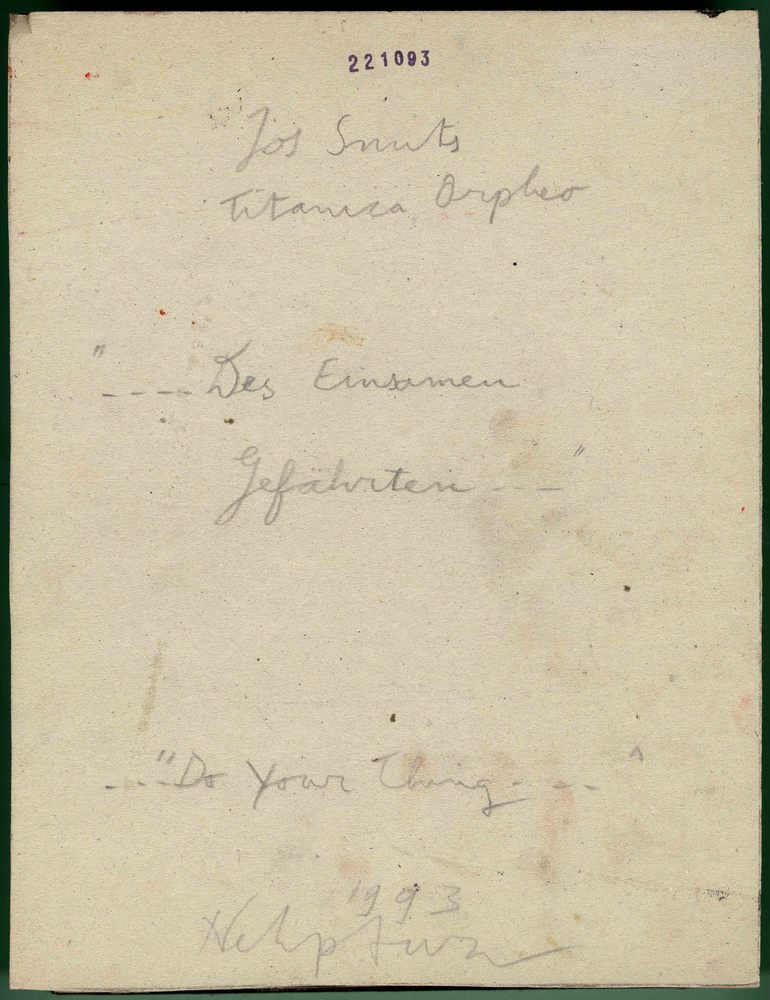 221093
Jos Smuts
Titanica Orpheo
"---- Des Einsamen
Gefährten ---"
---"Do Your Thing----"
1993